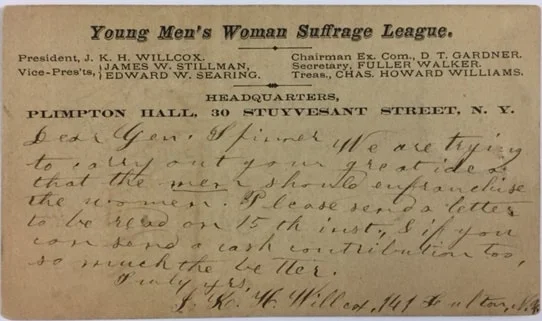 Young Men's Woman Suffrage League.
President, J. K. H. WILLCOX.
Vice-Pres'ts, { JAMES W. STILLMAN,
EDWARD W. SEARING.
Chairman Ex. Com., D. T. GARDNER.
Secretary, FULLER WALKER.
Treas., CHAS. HOWARD WILLIAMS.
HEADQUARTERS,
PLIMPTON HALL, 30 STUYVESANT STREET, N. Y.
Dear Gen. Spinner We are trying
to carry out your great idea
that the men should enfranchise
the women. Please send a letter
to be read on 15th inst., & if you
can send a cash contribution too,
so much the better.
Truly yrs,
J. K. H. Willcox, 141 Fulton, N.Y.